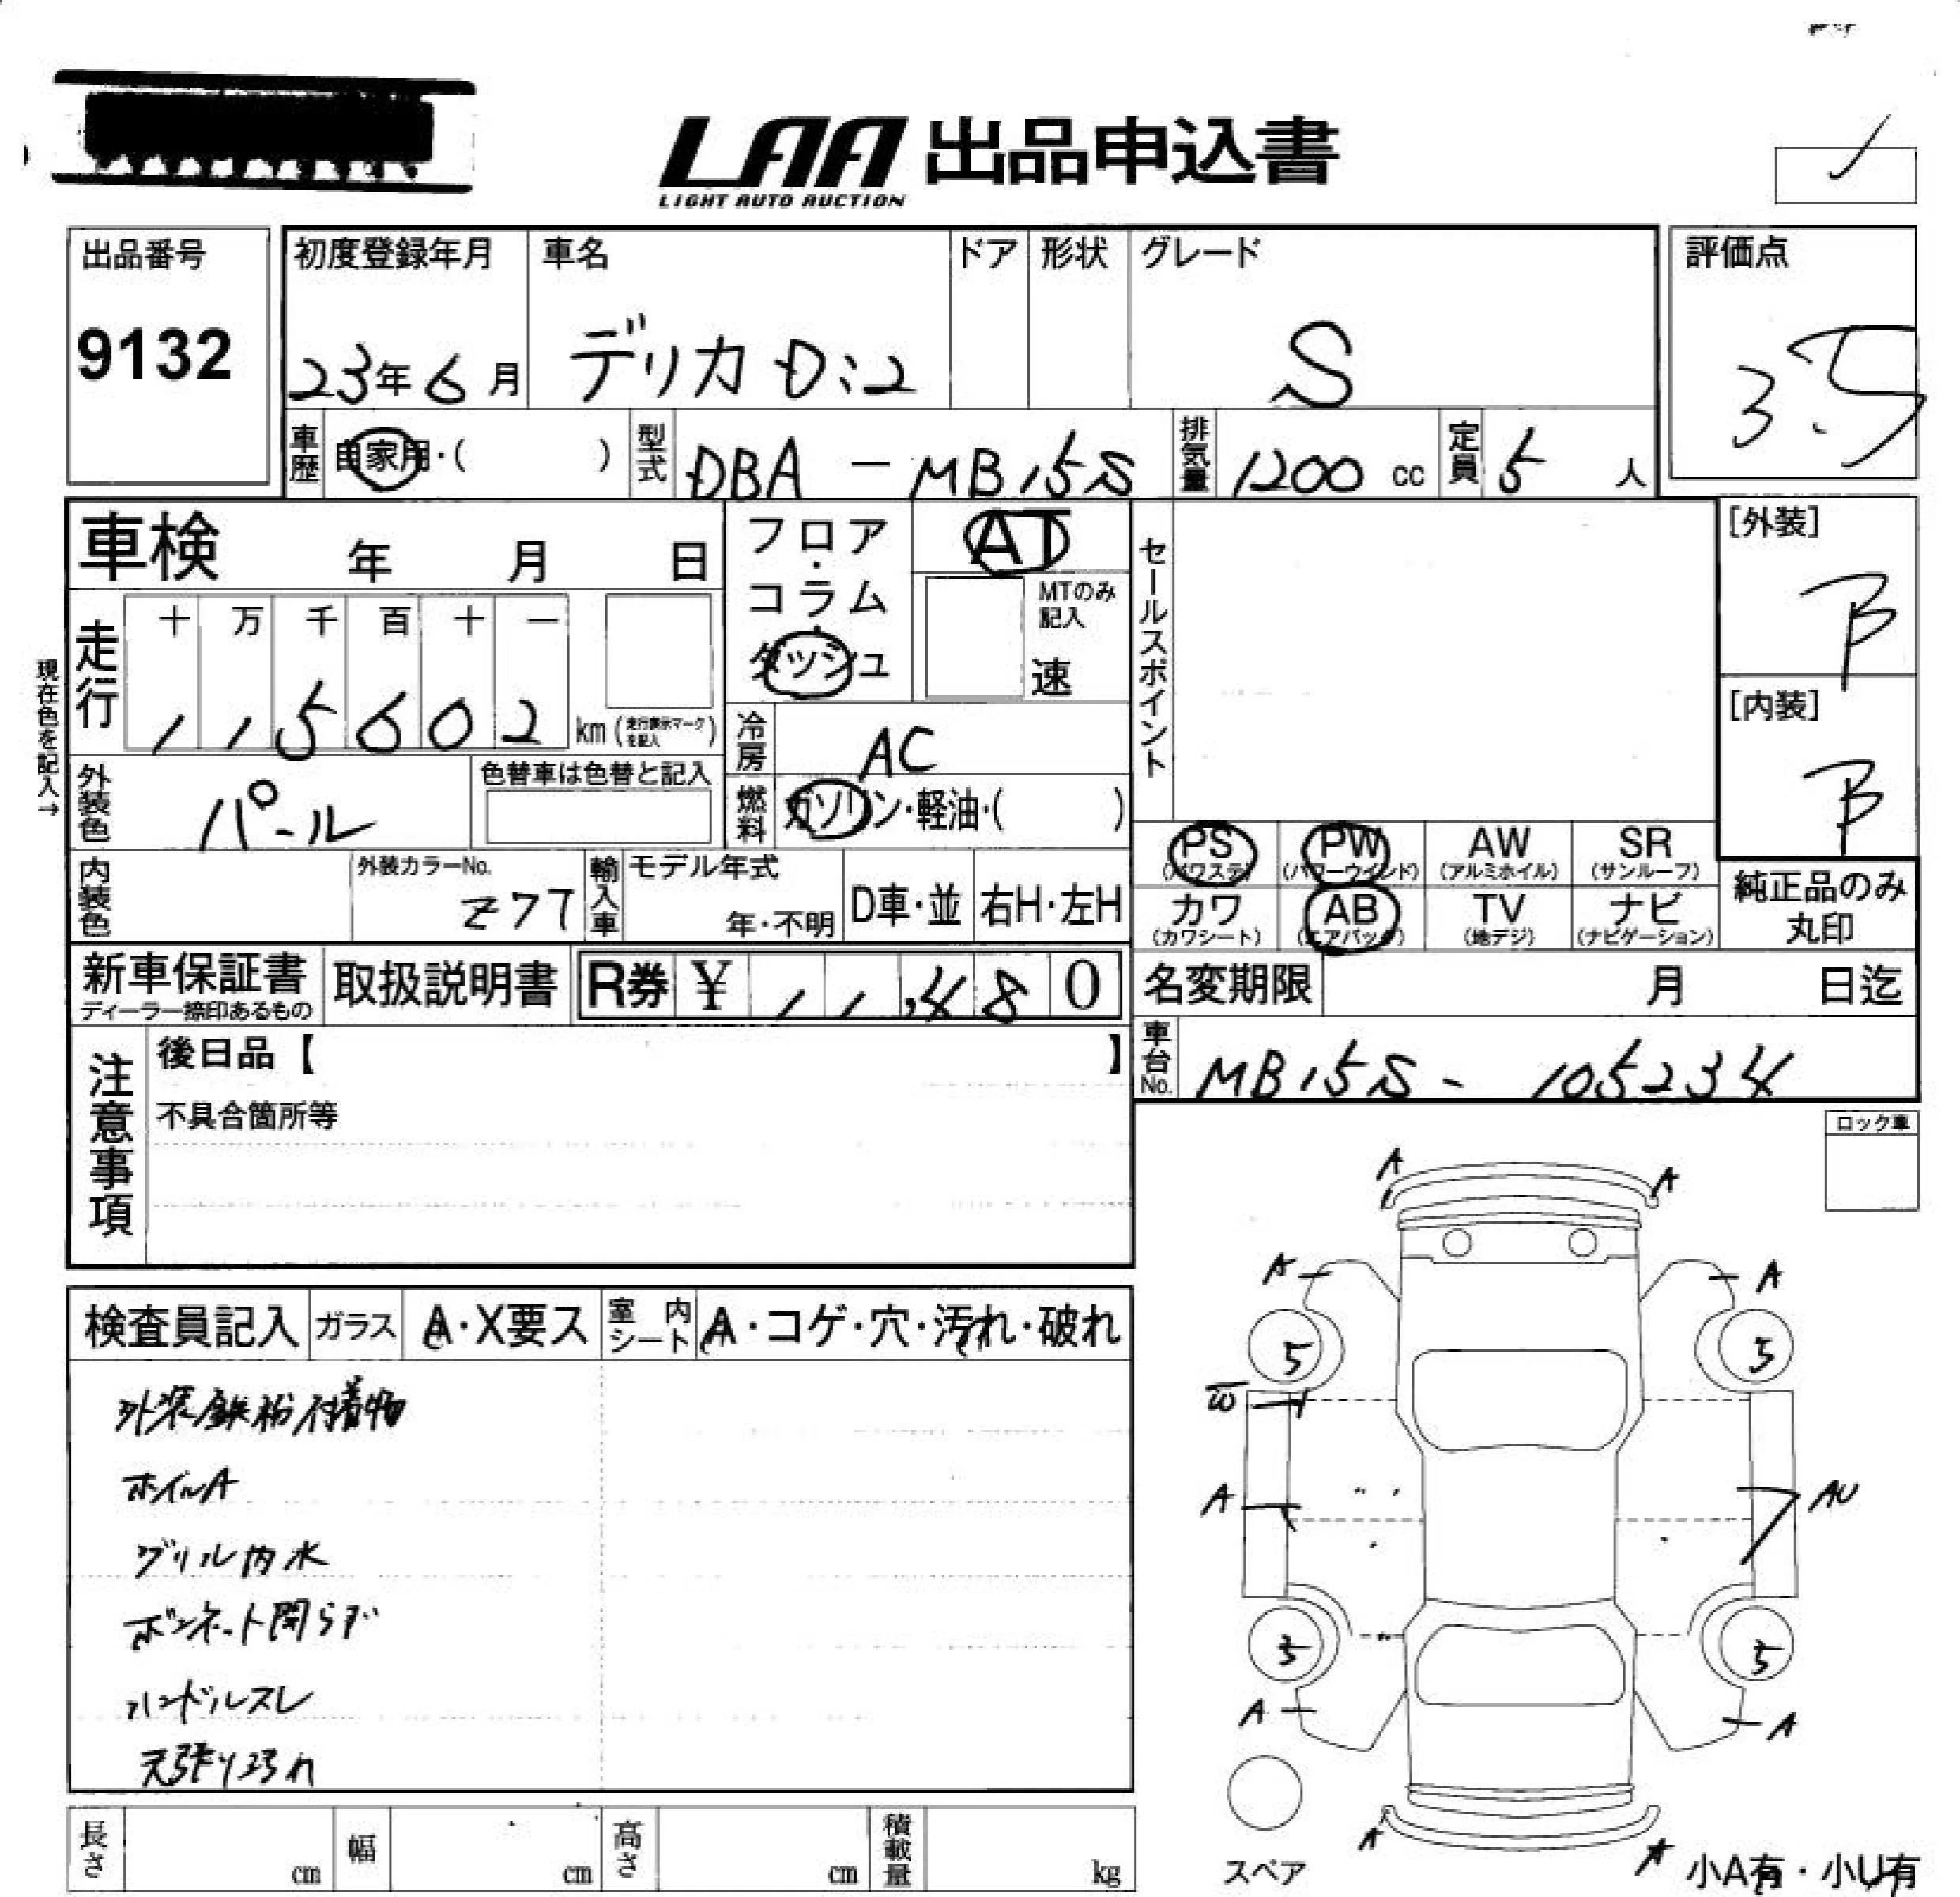 LAA 出品申込書
LIGHT AUTO AUCTION
出品番号 初度登録年月 車名 ドア 形状 グレード 評価点
9132 23年6月 デリカD:2 S 3.5
車歴 自家用・( ) 型式 DBA－MB15S 排気量 1200 cc 定員 5 人
車検 年 月 日
フロア・コラム・ダッシュ
AT
MTのみ記入
速
セールスポイント
[外装]
B
[内装]
B
現在色を記入→
走行 十 万 千 百 十 一
115602 km (走行表示マークを記入)
冷房 AC
燃料 ガソリン・軽油・( )
外装色 パール
色替車は色替と記入
内装色
外装カラーNo.
Z77
輸入車
モデル年式
年・不明
D車・並
右H・左H
PS (パワステ) PW (パワーウインド) AW (アルミホイル) SR (サンルーフ)
カワ (カワシート) AB (エアバック) TV (地デジ) ナビ (ナビゲーション)
純正品のみ
丸印
新車保証書
ディーラー捺印あるもの
取扱説明書
R券 ¥ 11,480
名変期限 月 日迄
車台No. MB15S - 105234
注意事項
後日品【 】
不具合箇所等
ロック車
検査員記入 ガラス A・X要ス 室内シート A・コゲ・穴・汚れ・破れ
外装鉄粉付着物
ホイルA
グリル内水
ボンネット開らず
ハンドルスレ
天張り汚れ
A A
A A
5 5
W
A AU
5 5
A A
A A
スペア
小A有・小U有
長さ cm 幅 cm 高さ cm 積載量 kg